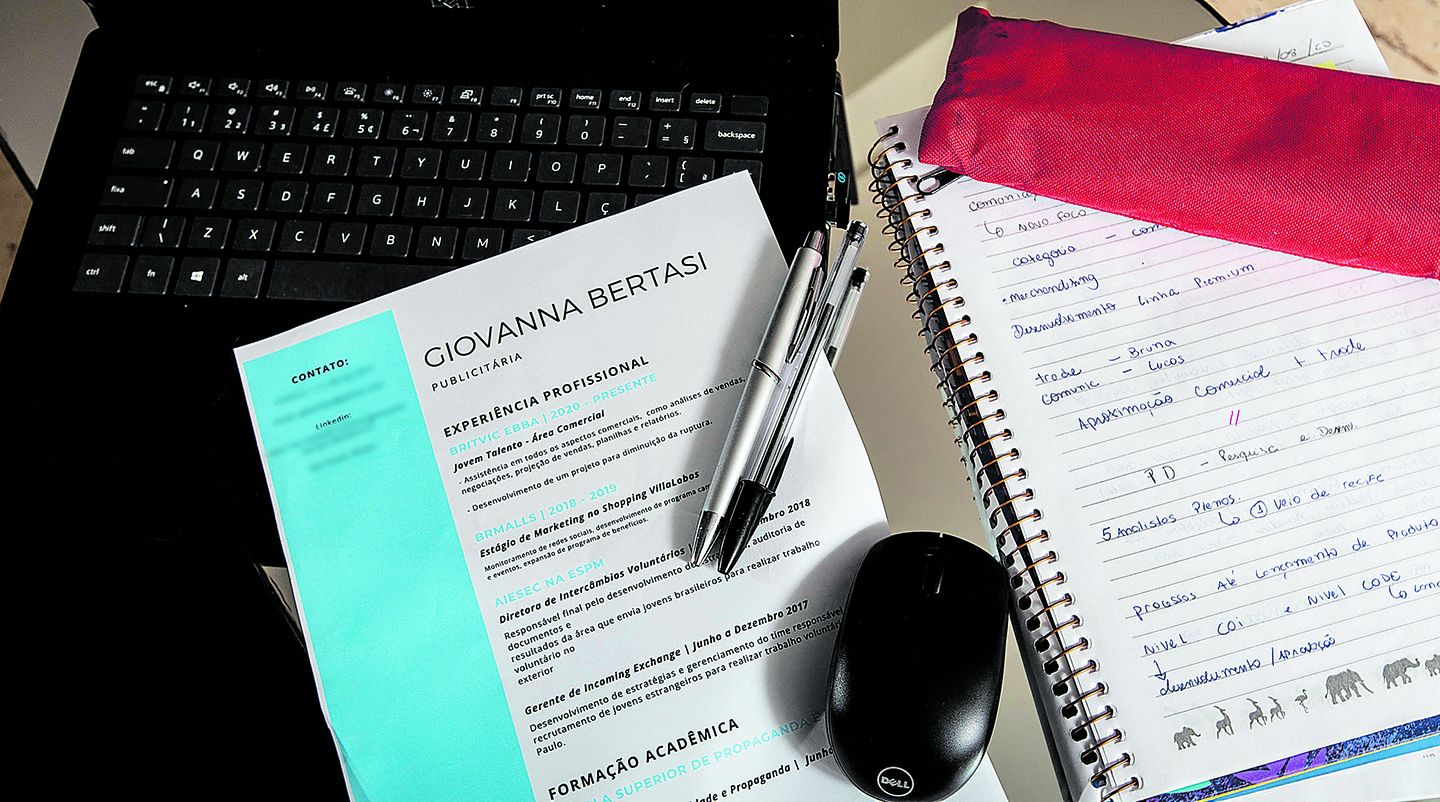 DELL
esc F1 F2 F3 F4 F5 F6 F7 F8 F9 prt sc F10 home F11 end F12 insert delete
" ' ! 1 1 @ 2 2 # 3 3 $ 4 £ % 5 ¢ 6 ¬ & 7 * 8 ( 9 ) 0 _ - + = § backspace
tab Q W E R T Y U I O P ` ´ { [ ª
fixa A S D F G H J K L Ç
shift | \ Z X C V B N M
ctrl fn alt
GIOVANNA BERTASI
PUBLICITÁRIA
CONTATO:
Linkedin:
EXPERIÊNCIA PROFISSIONAL
BRITVIC EBBA | 2020 - PRESENTE
Jovem Talento - Área Comercial
- Assistência em todos os aspectos comerciais, como análises de vendas,
negociações, projeção de vendas, planilhas e relatórios.
- Desenvolvimento de um projeto para diminuição da ruptura.
BRMALLS | 2018 - 2019
Estágio de Marketing no Shopping VillaLobos
Monitoramento de redes sociais, desenvolvimento de programa
e eventos, expansão de programa de benefícios.
AIESEC NA ESPM
Diretora de Intercâmbios Voluntários | 2018
Responsável final pelo desenvolvimento auditoria de
documentos e
resultados da área que envia jovens brasileiros para realizar trabalho
voluntário no
exterior
Gerente de Incoming Exchange | Junho a Dezembro 2017
Desenvolvimento de estratégias e gerenciamento do time responsável
recrutamento de jovens estrangeiros para realizar trabalho
Paulo.
FORMAÇÃO ACADÊMICA
SUPERIOR DE PROPAGANDA E
e Propaganda |
DELL
/08/20
NOVO FOCO
categoria -
• Merchandising
Desenvolvimento Linha Premium
trade - Bruna
comunic - Lucas
Aproximação Comercial + trade
PD - Pesquisa e Desenv.
5 Analistas Plenos.
① Veio de recife
processos Até Lançamento de Produto
NIVEL COI e NIVEL CODE
desenvolvimento / Aprovação